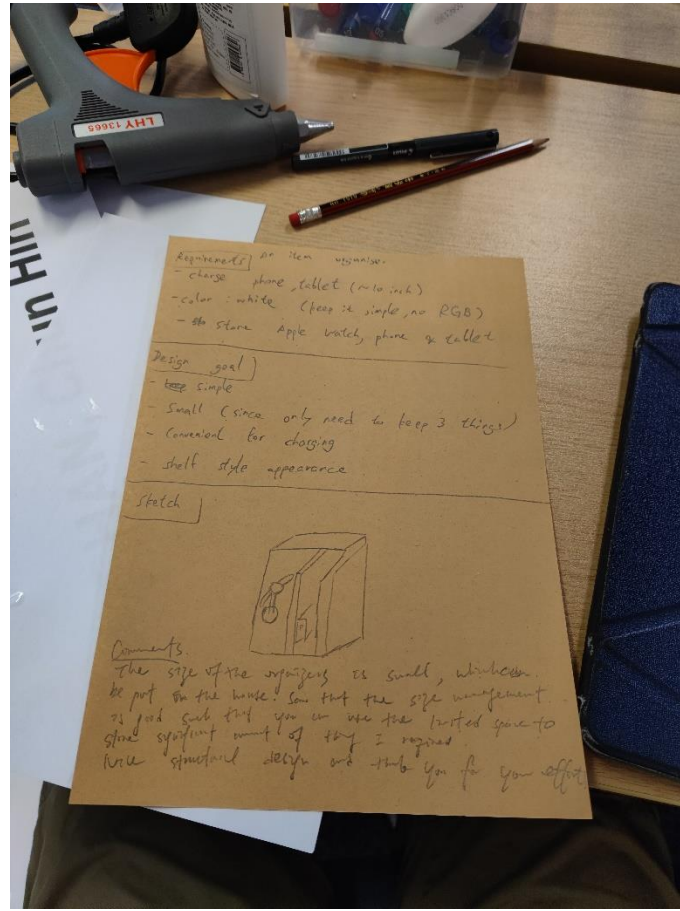 LHY 13665
Requirements An item organise.
- charge phone, tablet (~10 inch)
- color : white (keep it simple, no RGB)
- store Apple watch, phone & tablet
Design goal
- simple
- Small (since only need to keep 3 things)
- Convenient for charging
- shelf style appearance
Sketch
Comments.
The size of the organizers is small, which can
be put on the house. that the size management
is good such that you can use the limited space to
store significant amount of thing I required.
Nice structural design and thank you for your effort